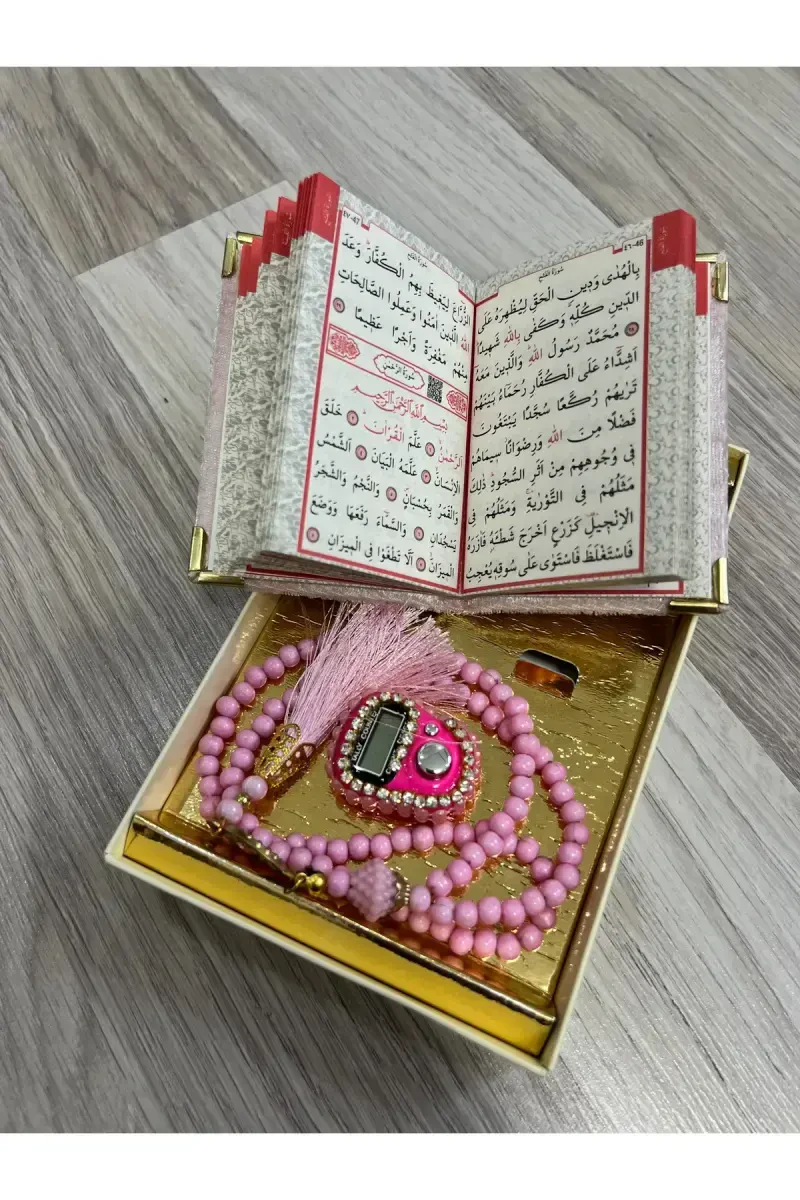 ٤٦-46
سُورَةُ الْفَتْحِ
بِالْهُدٰى وَدٖينِ الْحَقِّ لِيُظْهِرَهُ عَلَى
الدّٖينِ كُلِّهٖ وَكَفٰى بِاللّٰهِ شَهٖيدًا ﴿٢٨﴾
مُحَمَّدٌ رَسُولُ اللّٰهِ وَالَّذٖينَ مَعَهُٓ
اَشِدَّٓاءُ عَلَى الْكُفَّارِ رُحَمَٓاءُ بَيْنَهُمْ
تَرٰيهُمْ رُكَّعًا سُجَّدًا يَبْتَغُونَ
فَضْلًا مِنَ اللّٰهِ وَرِضْوَانًا سٖيمَاهُمْ
فٖى وُجُوهِهِمْ مِنْ اَثَرِ السُّجُودِ ذٰلِكَ
مَثَلُهُمْ فِى التَّوْرٰيةِ وَمَثَلُهُمْ فِى
الْاِنْجٖيلِ كَزَرْعٍ اَخْرَجَ شَطْـَٔهُ فَاٰزَرَهُ
فَاسْتَغْلَظَ فَاسْتَوٰى عَلٰى سُوقِهٖ يُعْجِبُ
٤٧-47
سُورَةُ الْفَتْحِ
الزُّرَّاعَ لِيَغٖيظَ بِهِمُ الْكُفَّارَ وَعَدَ
اللّٰهُ الَّذٖينَ اٰمَنُوا وَعَمِلُوا الصَّالِحَاتِ
مِنْهُمْ مَغْفِرَةً وَاَجْرًا عَظٖيمًا ﴿٢٩﴾
سُورَةُ الرَّحْمٰنِ
بِسْمِ اللّٰهِ الرَّحْمٰنِ الرَّحٖيمِ
اَلرَّحْمٰنُ ﴿١﴾ عَلَّمَ الْقُرْاٰنَ ﴿٢﴾ خَلَقَ
الْاِنْسَانَ ﴿٣﴾ عَلَّمَهُ الْبَيَانَ ﴿٤﴾ اَلشَّمْسُ
وَالْقَمَرُ بِحُسْبَانٍ ﴿٥﴾ وَالنَّجْمُ وَالشَّجَرُ
يَسْجُدَانِ ﴿٦﴾ وَالسَّمَٓاءَ رَفَعَهَا وَوَضَعَ
الْمٖيزَانَ ﴿٧﴾ اَلَّا تَطْغَوْا فِى الْمٖيزَانِ ﴿٨﴾